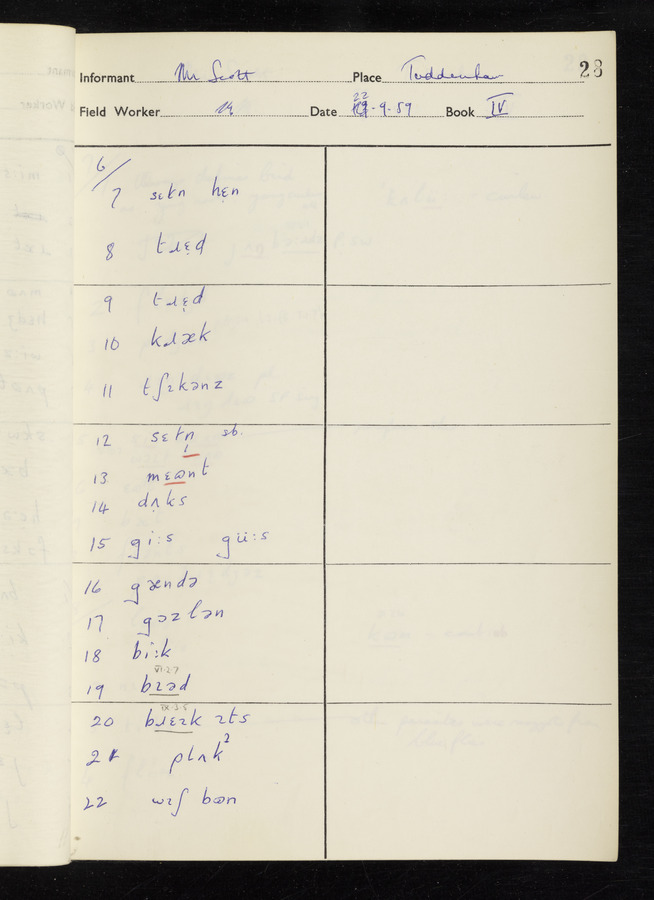 28
Informant Mr Scott Place Tuddenham
Field Worker Date 22 19-9-59 Book IV
6/
7 sɛtn hɛn
8 tɹɛd
9 tɹɛd
10 kɹæk
11 tʃɪkənz
12 sɛtn̩ sb.
13 mɛʊnt
14 dʌks
15 gi:s güi:s
16 gændə
17 gɔzlən
18 bi:k
19 bɹəd
VI.2.7
20 bɹɛɪk ɪts
IX.3.5
21 plʌk²
22 wɪʃ bʊn